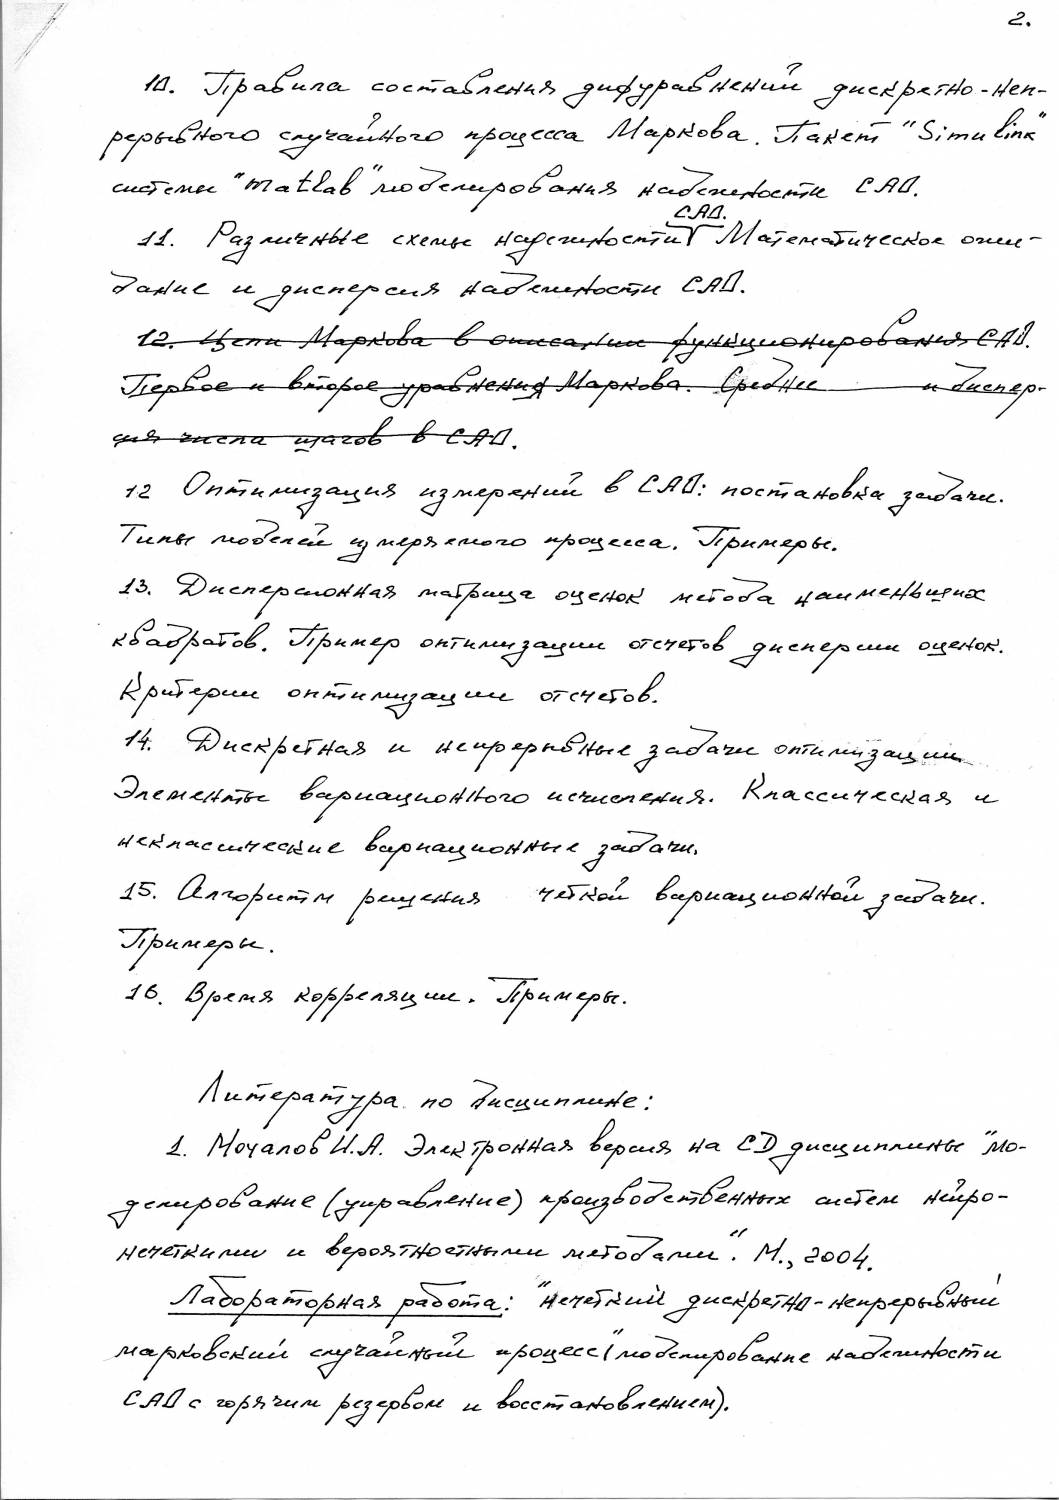 2.
10. Правила составления дифуравнений дискретно-неп-
рерывного случайного процесса Маркова. Пакет "Simulink"
системы "matlab" моделирования надежности САО.
САО.
11. Различные схемы надежности Математическое ожи-
дание и дисперсия надежности САО.
12. Цепи Маркова в описании функционирования САО.
Первое и второе уравнения Маркова. Среднее и диспер-
сия числа шагов в САО.
12 Оптимизация измерений в САО: постановка задачи.
Типы моделей измеряемого процесса. Примеры.
13. Дисперсионная матрица оценок метода наименьших
квадратов. Пример оптимизации отсчетов дисперсии оценок.
Критерии оптимизации отсчетов.
14. Дискретная и непрерывные задачи оптимизации
Элементы вариационного исчисления. Классическая и
неклассические вариационные задачи.
15. Алгоритм решения четкой вариационной задачи.
Примеры.
16. Время корреляции. Примеры.
Литература по дисциплине:
1. Мочалов И.А. Электронная версия на CD дисциплины "Мо-
делирование (управление) производственных систем нейро-
нечеткими и вероятностными методами". М., 2004.
Лабораторная работа: "нечеткий дискретно-непрерывный
марковский случайный процесс" (моделирование надежности
САО с горячим резервом и восстановлением).